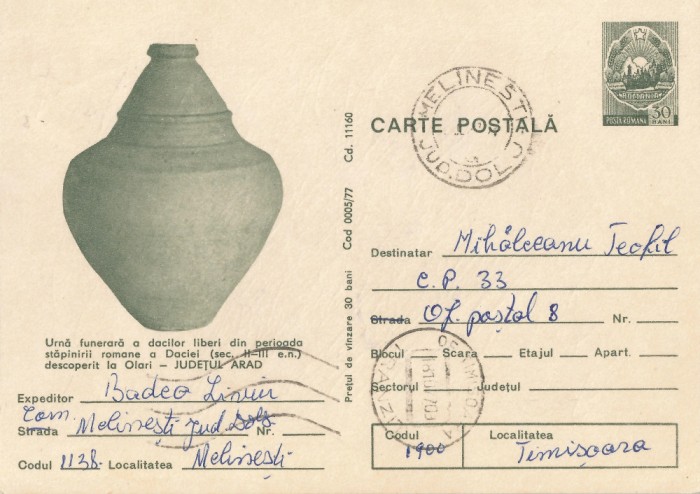 MELINEȘTI
JUD. DOLJ
POSTA ROMANA 30 BANI
CARTE POȘTALĂ
Cd. 11160
Prețul de vînzare 30 bani Cod 0005/77
Destinatar Mihălceanu Teofil
C.P. 33
Strada Of. poștal 8 Nr.
Blocul Scara Etajul Apart.
Sectorul Județul
Codul Localitatea
1900 Timișoara
TRANZIT
Urnă funerară a dacilor liberi din perioada
stăpinirii romane a Daciei (sec. II–III e.n.)
descoperit la Olari – JUDEȚUL ARAD
Expeditor Badea
Com.
Strada Melinești Jud. Dolj Nr.
Codul 1138 Localitatea Melinești